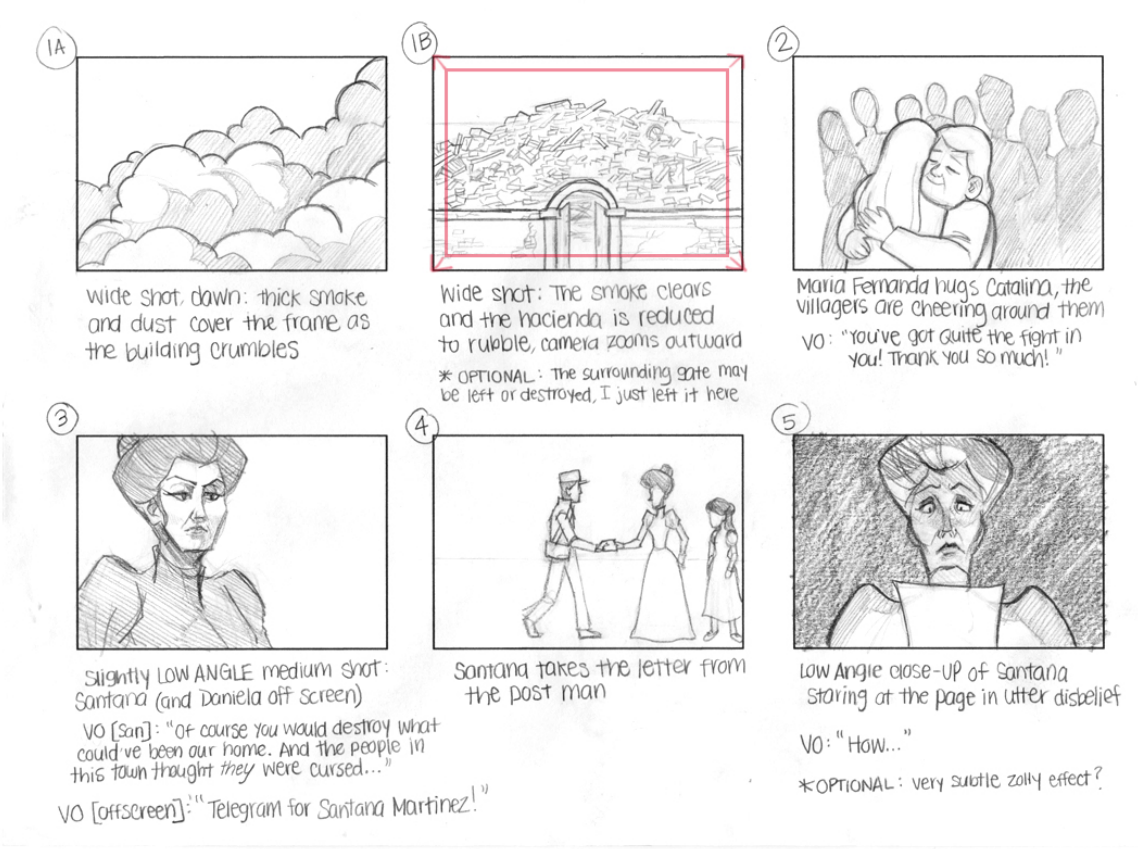 1A
wide shot, dawn: thick smoke
and dust cover the frame as
the building crumbles
1B
wide shot: The smoke clears
and the hacienda is reduced
to rubble, camera zooms outward
* OPTIONAL: The surrounding gate may
be left or destroyed, I just left it here
2
Maria Fernanda hugs Catalina, the
villagers are cheering around them
VO: "You've got quite the fight in
you! Thank you so much!"
3
Slightly LOW ANGLE medium shot:
Santana (and Daniela off screen)
VO [San]: "Of course you would destroy what
could've been our home. And the people in
this town thought they were cursed..."
VO [offscreen]: "Telegram for Santana Martinez!"
4
Santana takes the letter from
the post man
5
Low Angle close-up of Santana
staring at the page in utter disbelief
VO: "How..."
*OPTIONAL: very subtle zolly effect?